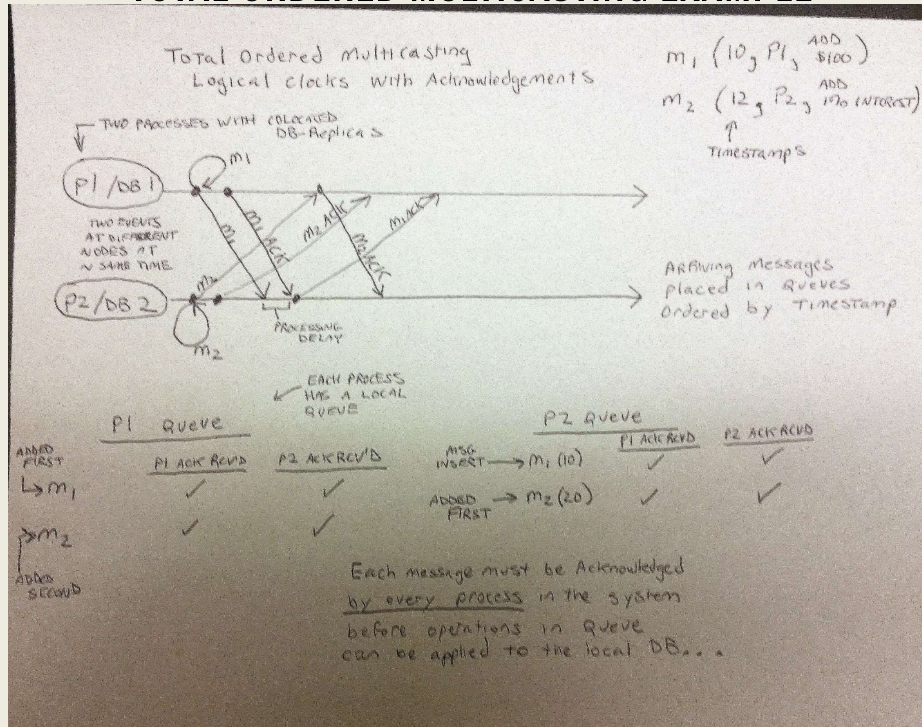 TOTAL ORDERED MULTICASTING EXAMPLE
Total Ordered Multicasting
Logical Clocks with Acknowledgements
m1 (10, P1, ADD $100)
m2 (12, P2, ADD 1% INTEREST)
TIMESTAMPS
TWO PROCESSES WITH COLOCATED
DB-Replicas
m1
P1/DB1
TWO EVENTS
AT DIFFERENT
NODES AT
~ SAME TIME
m1
m1 ACK
m2
m2 ACK
m2 ACK
m1 ACK
P2/DB2
m2
PROCESSING
DELAY
Arriving Messages
placed in Queues
Ordered by Timestamp
EACH PROCESS
HAS A LOCAL
QUEUE
P1 Queue
P1 ACK RCV'D P2 ACK RCV'D
ADDED
FIRST
m1 ✓ ✓
m2 ✓ ✓
ADDED
SECOND
P2 Queue
P1 ACK RCVD P2 ACK RCVD
MSG
INSERT → m1 (10) ✓ ✓
ADDED
FIRST → m2 (20) ✓ ✓
Each message must be Acknowledged
by every process in the system
before operations in Queue
can be applied to the local DB...